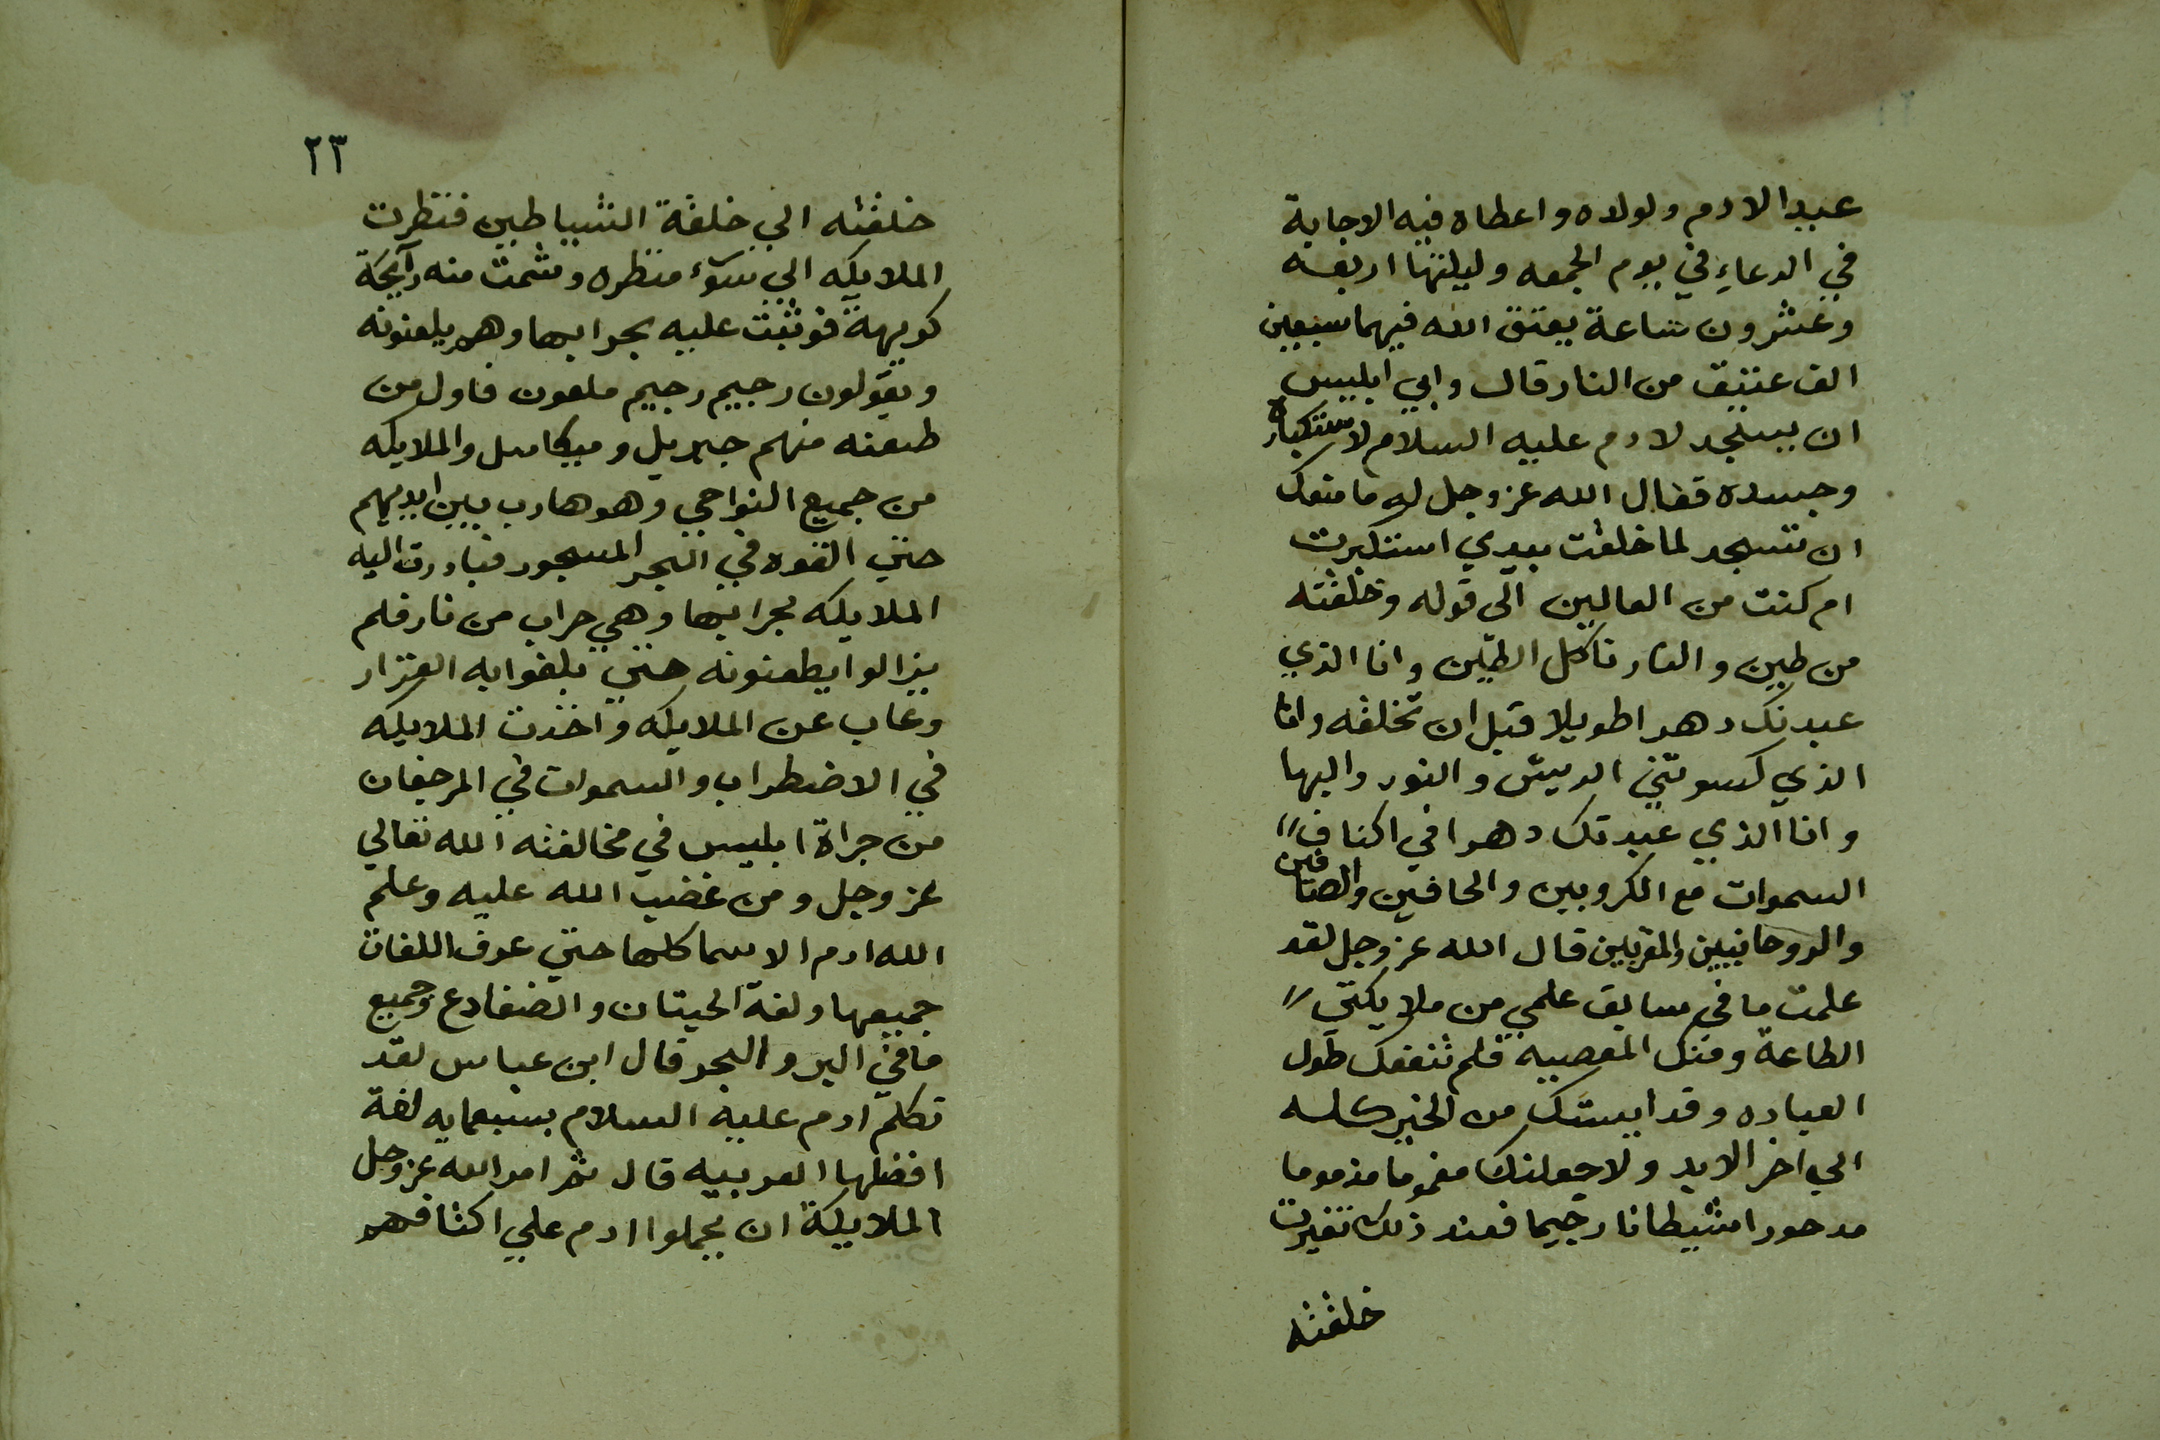 عيدا لادم ولولاده واعطاه فيه الاجابة
في الدعاءِ في يوم الجمعه وليلتها اربعه
وعشرون ساعة يعتق الله فيهما سبعين
الف عتيق من النار قال وابي ابليس
ان يسجد لادم عليه السلام لاستكباره
وحسده فقال الله عز وجل له ما منعك
ان تسجد لما خلقت بيدي استكبرت
ام كنت من العالين الى قوله وخلقته
من طين والنار تاكل الطين وانا الذي
عبدتك دهرا طويلا قبل ان تخلقه وانا
الذي كسوتني الريش والنور والبها
وانا الذي عبدتك دهرا في اكناف
السموات مع الكروبين والحافين والصافين
والروحانيين والمقربين قال الله عز وجل لقد
علمت ما في سابق علمي من ملايكتي
الطاعة ومنك المعصيه فلم تنفعك طول
العباده وقد ايستك من الخير كله
الي اخر الابد ولاجعلنك مغموما مذموما
مدحورا شيطانا رجيما فعند ذلك تغيرت
خلقته
٢٣
خلقته الي خلقة الشياطين فنظرت
الملايكه الي سوٓء منظره وشمت منه رآيحة
كريهة فوثبت عليه بحرابها وهم يلعنونه
ويقولون رجيم رجيم ملعون فاول من
طعنه منهم جبريل وميكاييل والملايكه
من جميع النواحي وهو هارب بين ايديهم
حتي القوه في البحر المسجور فبادرت اليه
الملايكه بحرابها وهي حراب من نار فلم
يزالوا يطعنونه حتي بلغوا به القرار
وغاب عن الملايكه واخذت الملايكه
في الاضطراب والسموات في المرجفان
من جراة ابليس في مخالفته الله تعالي
عز وجل ومن غضب الله عليه وعلم
الله ادم الاسما كلها حتي عرف اللغات
جميعها ولغة الحيتان والضفادع وجميع
ما في البر والبحر قال ابن عباس لقد
تكلم ادم عليه السلام بسبعمايه لغة
افضلها العربيه قال ثم امر الله عز وجل
الملايكة ان يحملوا ادم علي اكتافهم